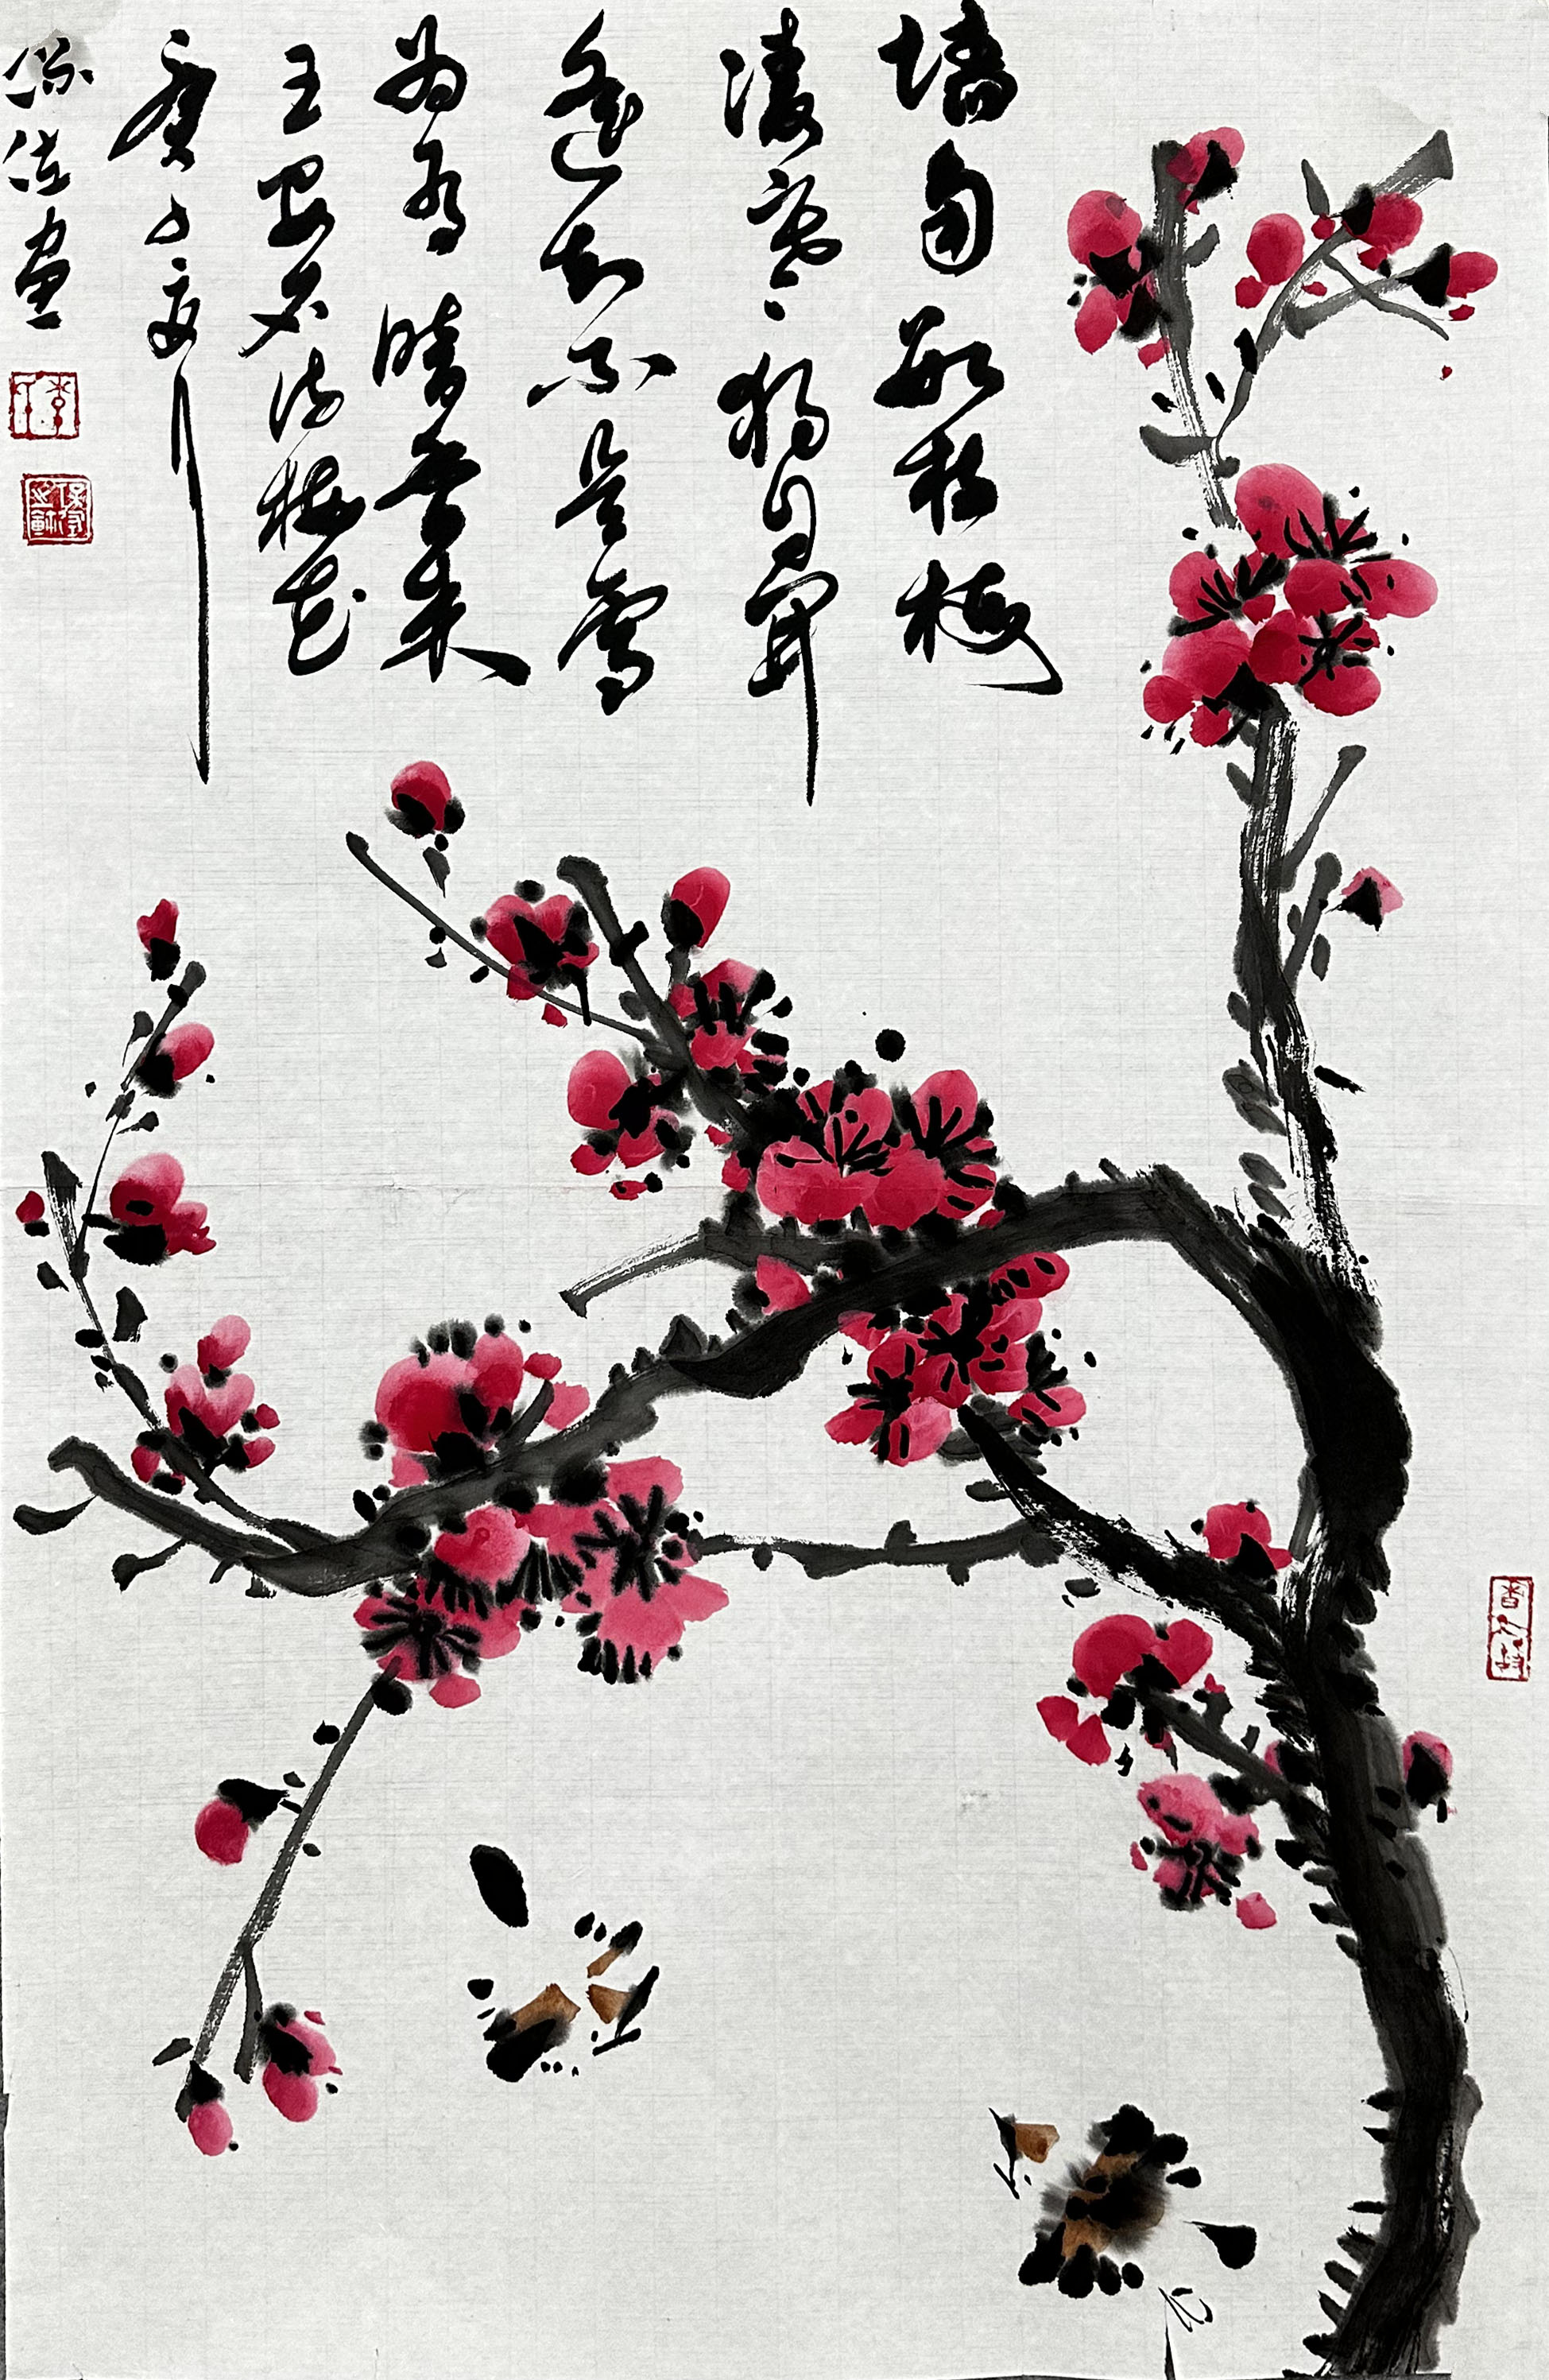 墙角数枝梅
凌寒独自開
遥知不是雪
为有暗香来
王安石诗梅花
庚子夏月
保画